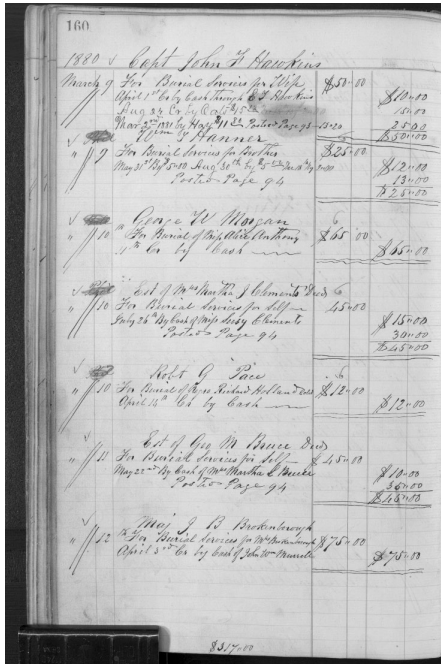 160
1880 Capt John F Hawkins
March 9 For Burial Services for Wife $50.00
April 1st Cr by Cash through E F Hawkins $10.00
Aug 24 Cr by Cash 15.00
Mar 22nd 1881 by Hay $11 Posted Page 93 25.00
$50.00
Hanner
" 9 For Burial Services for Brother $25.00
May 31st By $5.00 Aug 30th by $5 $12.00
Posted Page 94 13.00
$25.00
George W Morgan
" 10 For Burial of Miss Alice Anthony $65.00
11th Cr by Cash $65.00
Est of Mrs Martha J Clements Decd
" 10 For Burial Services for Self 45.00
July 26th By Cash of Miss Clements $15.00
Posted Page 94 30.00
$45.00
Robt G Pace
" 10 For Burial of Richard Holland $12.00
April 14th Cr by Cash $12.00
Est of Geo M Bruce Decd
" 11 For Burial Services for Self $45.00
May 22nd By Cash of Mrs Martha S Bruce $10.00
Posted Page 94 35.00
$45.00
Maj J B Brokenbrough
" 12 For Burial Services for Mrs Brokenbrough $75.00
April 3rd Cr by Cash of John Wm Murrell $75.00
$317.00